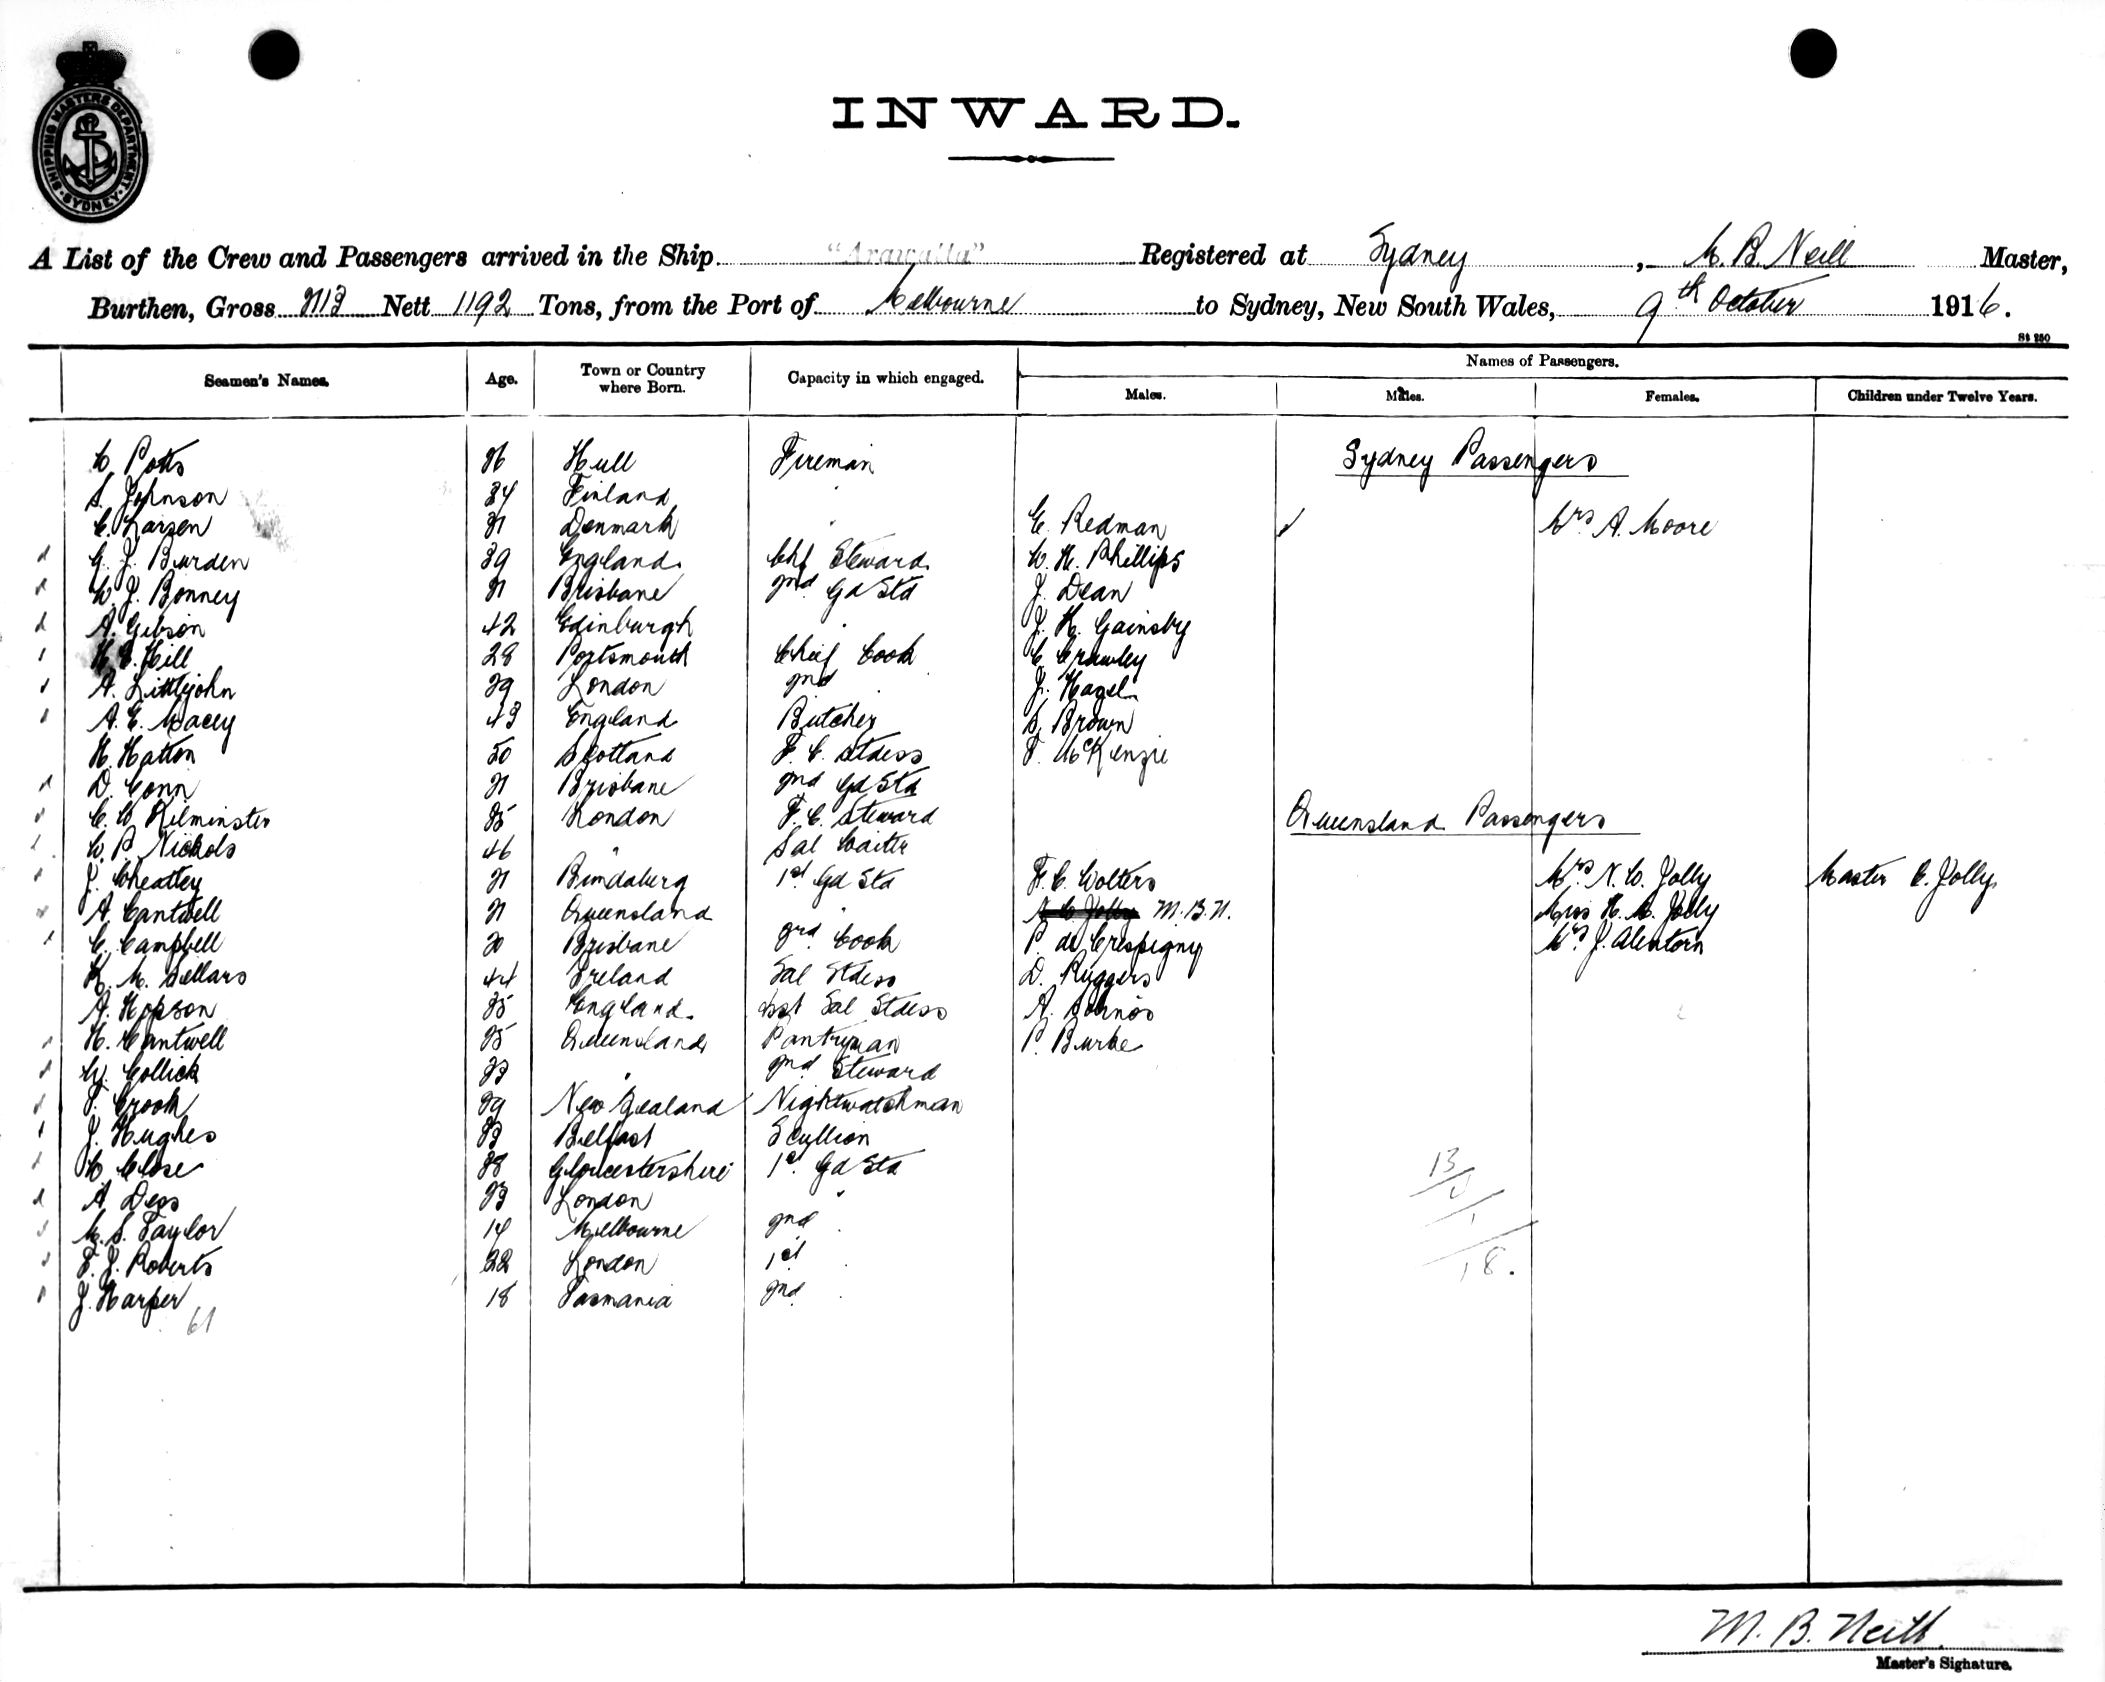 SHIPPING MASTERS DEPARTMENT
SYDNEY
INWARD.
A List of the Crew and Passengers arrived in the Ship "Arawatta" Registered at Sydney, M. B. Neill Master,
Burthen, Gross 2113 Nett 1192 Tons, from the Port of Melbourne to Sydney, New South Wales, 9th October 1916.
St 250
Seamen's Names. Age. Town or Country where Born. Capacity in which engaged. Names of Passengers.
Males. Males. Females. Children under Twelve Years.
W. Potts 26 Hull Fireman Sydney Passengers
S. Johnson 34 Finland "
C. Larsen 21 Denmark " E. Redman Mrs A. Moore
G. J. Burden 39 England Chf Steward W. H. Phillips
W. J. Bonney 21 Brisbane 2nd Gd Std J. Dean
A. Gibson 42 Edinburgh " J. H. Gainsby
H. E. Hill 28 Portsmouth Chief Cook C. Crawley
A. Littlejohn 29 London 2nd " J. Hazel
A. E. Macey 43 England Butcher S. Brown
H. Hatton 50 Scotland F. C. Stdess F. McKenzie
D. Conn 21 Brisbane 2nd Gd Std
C. W. Kilminster 25 London F. C. Steward Queensland Passengers
W. P. Nichols 46 " Sal Waiter
J. Wheatley 21 Bundaberg 1st Gd Std F. C. Wolters Mrs N. W. Jolly Master E. Jolly
A. Cantwell 21 Queensland " M.B.N. Miss H. M. Jolly
C. Campbell 20 Brisbane 3rd Cook P. de Crespigny Mrs J. Alentorn
K. M. Sellars 44 Ireland Sal Stdess D. Ruggers
A. Hopson 35 England Asst Sal Stdess A.
H. Cantwell 25 Queensland Pantryman P. Burke
W. Collick 23 " 2nd Steward
T. Crook 29 New Zealand Nightwatchman
J. Hughes 23 Belfast Scullion
W. Close 38 Gloucestershire 1st Gd Std
A. Dess 23 London "
M. S. Taylor 14 Melbourne 2nd "
F. J. Roberts 22 London 1st "
J. Harper 18 Tasmania 2nd "
61
13
18.
M. B. Neill
Master's Signature.